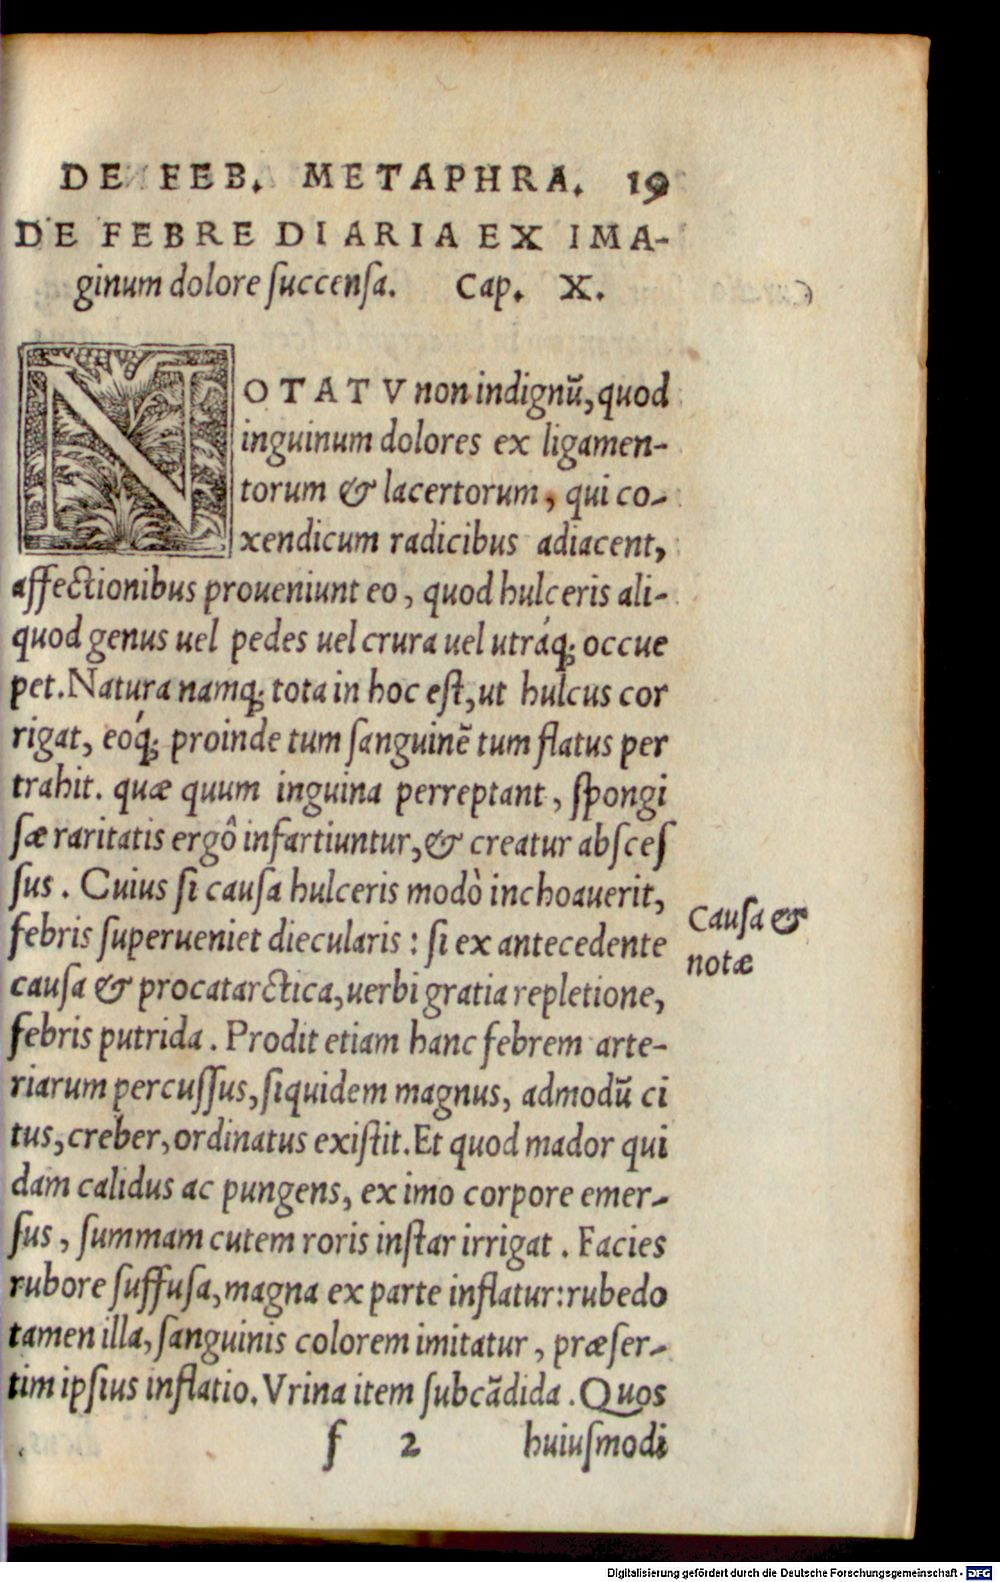 DE FEB. METAPHRA. 19
DE FEBRE DIARIA EX IMA-
ginum dolore succensa. Cap. X.
NOTATV non indignũ, quod
inguinum dolores ex ligamen-
torum & lacertorum, qui co-
xendicum radicibus adiacent,
affectionibus proueniunt eo, quod hulceris ali-
quod genus uel pedes uel crura uel utráq; occue
pet. Natura namq; tota in hoc est, ut hulcus cor
rigat, eóq; proinde tum sanguinẽ tum flatus per
trahit. quæ quum inguina perreptant, spongi
sæ raritatis ergô infartiuntur, & creatur absces
sus. Cuius si causa hulceris modò inchoauerit,
febris superueniet diecularis: si ex antecedente
causa & procatarctica, uerbi gratia repletione,
febris putrida. Prodit etiam hanc febrem arte-
riarum percussus, siquidem magnus, admodũ ci
tus, creber, ordinatus existit. Et quod mador qui
dam calidus ac pungens, ex imo corpore emer-
sus, summam cutem roris instar irrigat. Facies
rubore suffusa, magna ex parte inflatur: rubedo
tamen illa, sanguinis colorem imitatur, præser-
tim ipsius inflatio. Vrina item subcãdida. Quos
f 2 huiusmodi
Causa &
notæ
Digitalisierung gefördert durch die Deutsche Forschungsgemeinschaft - DFG